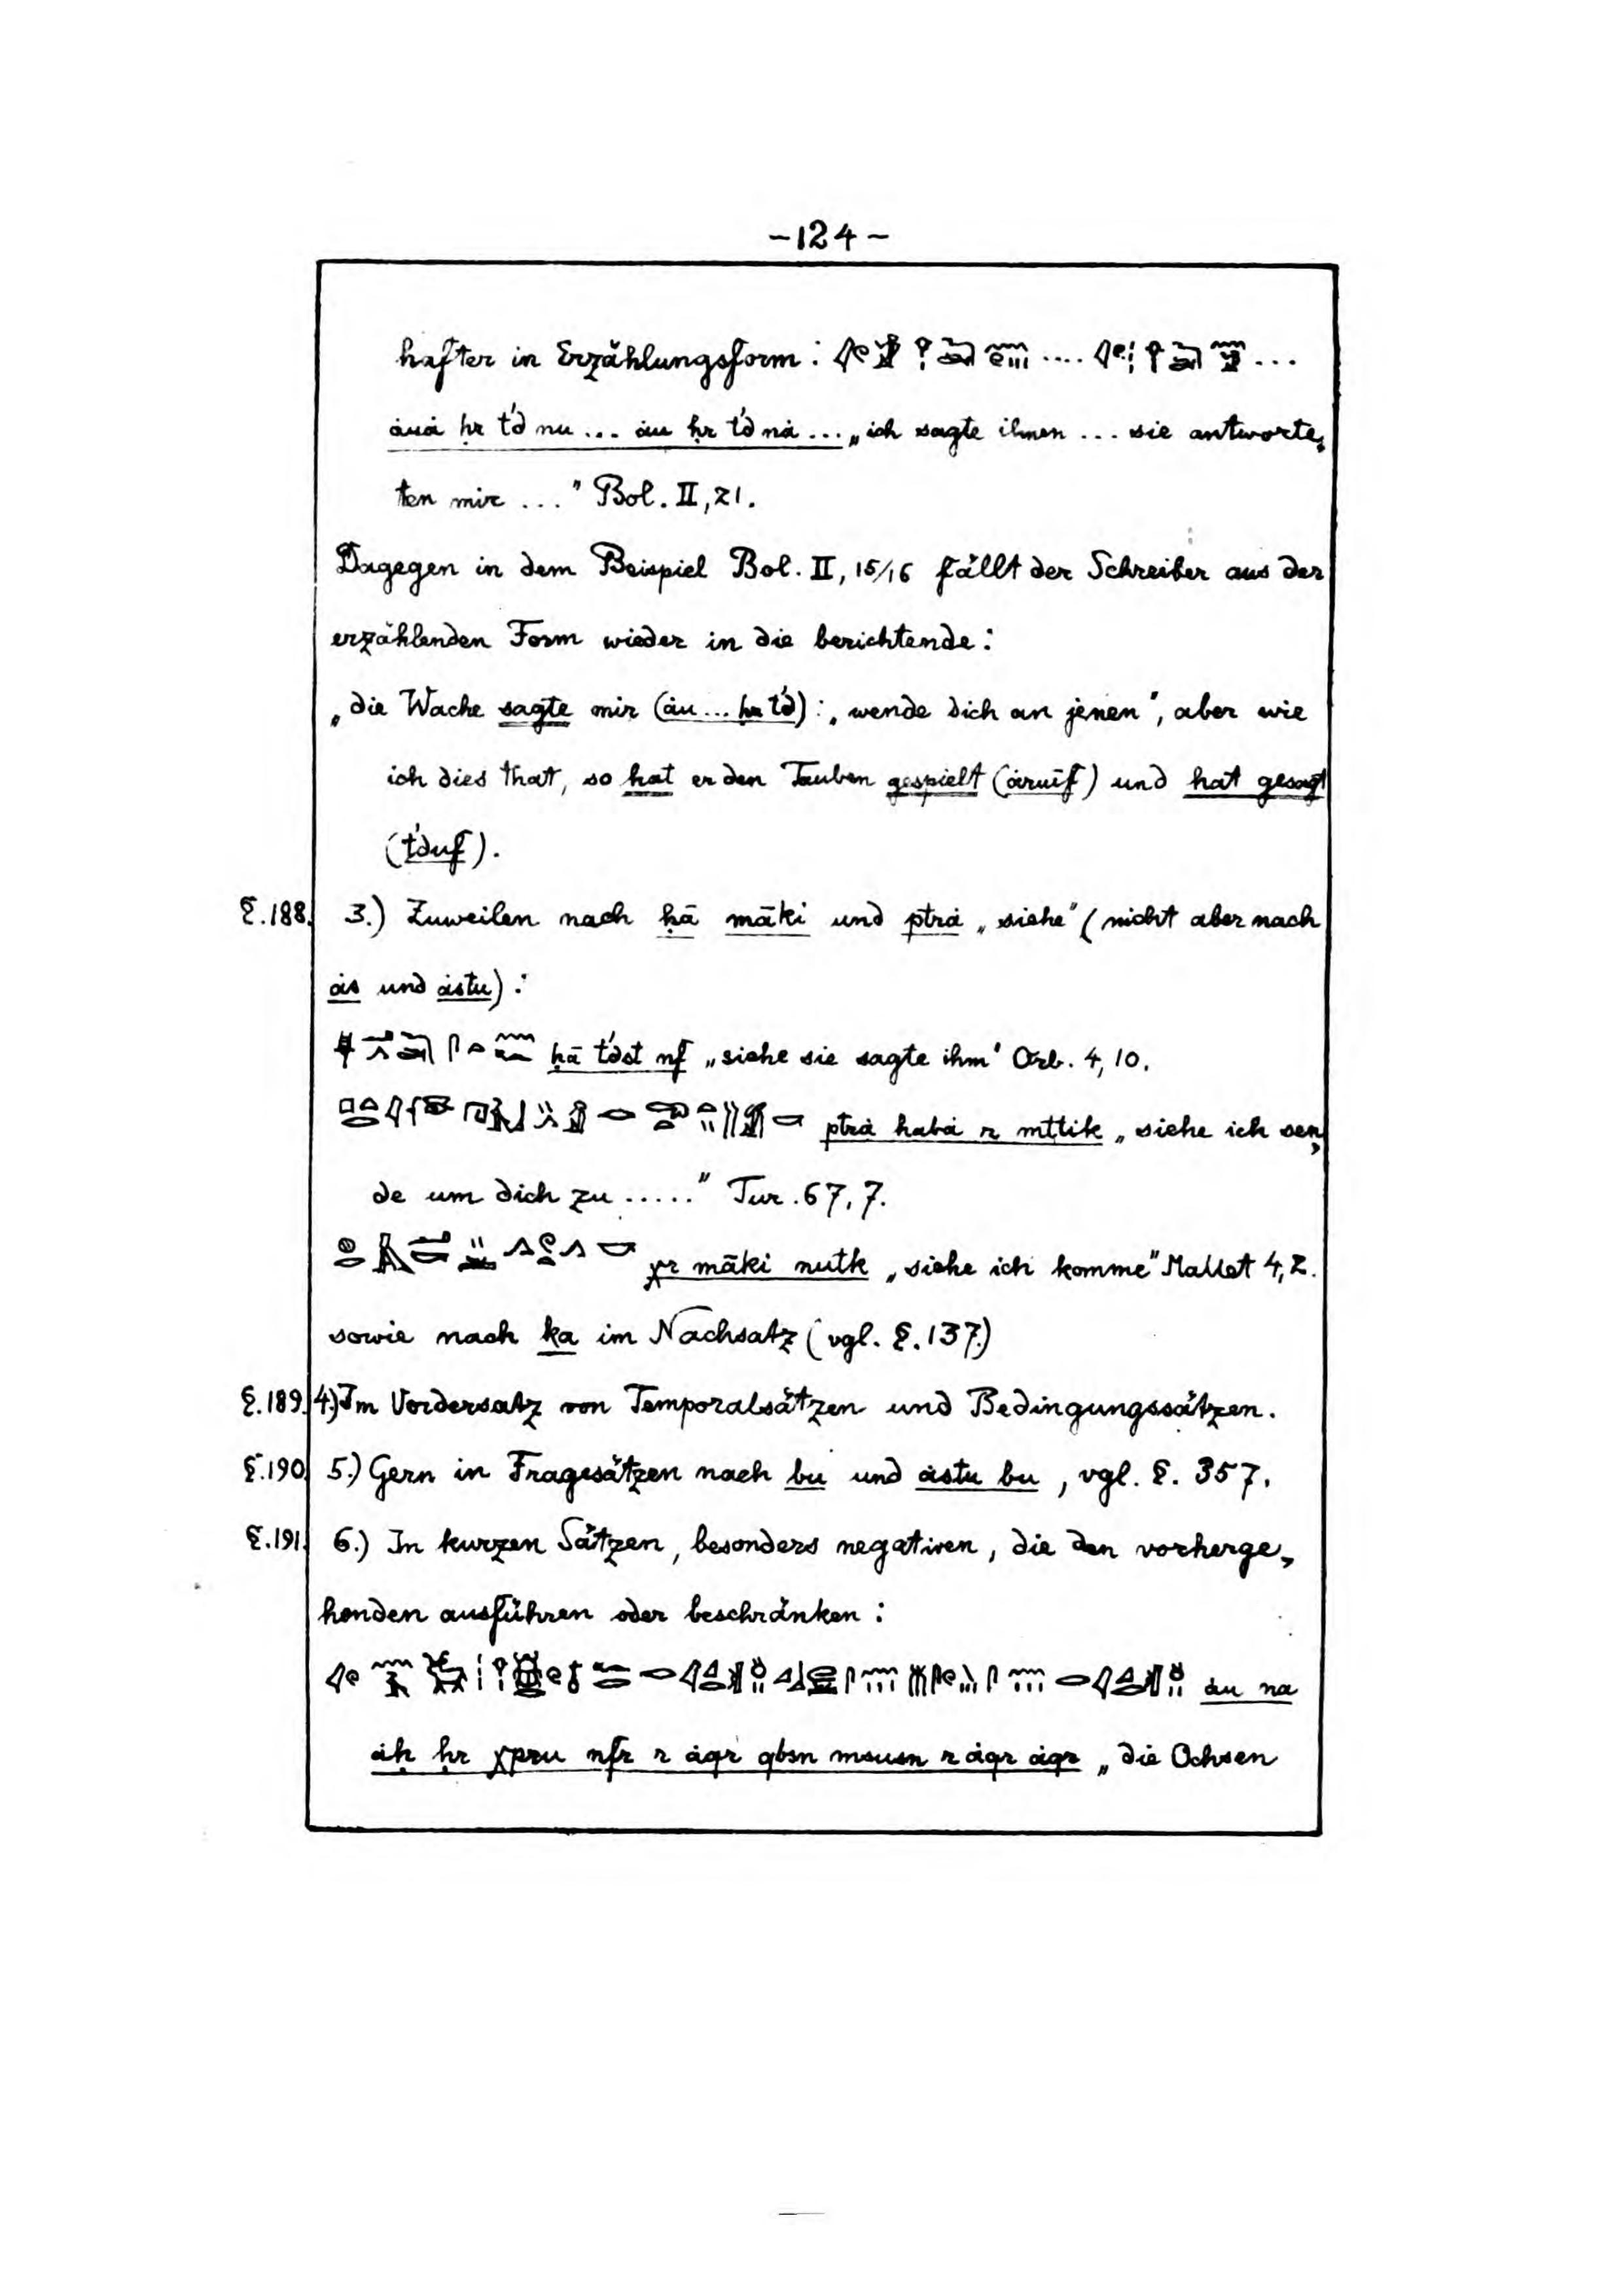 -124-
hafter in Erzählungsform: .... ...
ȧuȧ ḥr t́d nu ... ȧu ḥr t́d nȧ ... „ich sagte ihnen ... sie antworte-
ten mir ..." Bol. II, 21.
Dagegen in dem Beispiel Bol. II, 15/16 fällt der Schreiber aus der
erzählenden Form wieder in die berichtende:
„die Wache sagte mir (ȧu ... ḥr t́d): „wende dich an jenen", aber wie
ich dies that, so hat er den Tauben gespielt (ȧruif) und hat gesagt
(t́duf).
§.188. 3.) Zuweilen nach ḥā māki und ptrȧ „siehe" (nicht aber nach
ȧs und ȧstu):
ḥā t́dst nf „siehe sie sagte ihm" Orb. 4, 10.
ptrȧ habȧ r mttik „siehe ich sen-
de um dich zu ....." Tur. 67, 7.
χr māki nutk „siehe ich komme" Mallet 4, 2.
sowie nach ka im Nachsatz (vgl. §.137.)
§.189. 4.) Im Vordersatz von Temporalsätzen und Bedingungssätzen.
§.190. 5.) Gern in Fragesätzen nach bu und ȧstu bu, vgl. §. 357.
§.191. 6.) In kurzen Sätzen, besonders negativen, die den vorherge-
henden ausführen oder beschränken:
ȧu na
ȧḥ ḥr χpru nfr r ȧqr qbsn msusn r ȧqr ȧqr „die Ochsen